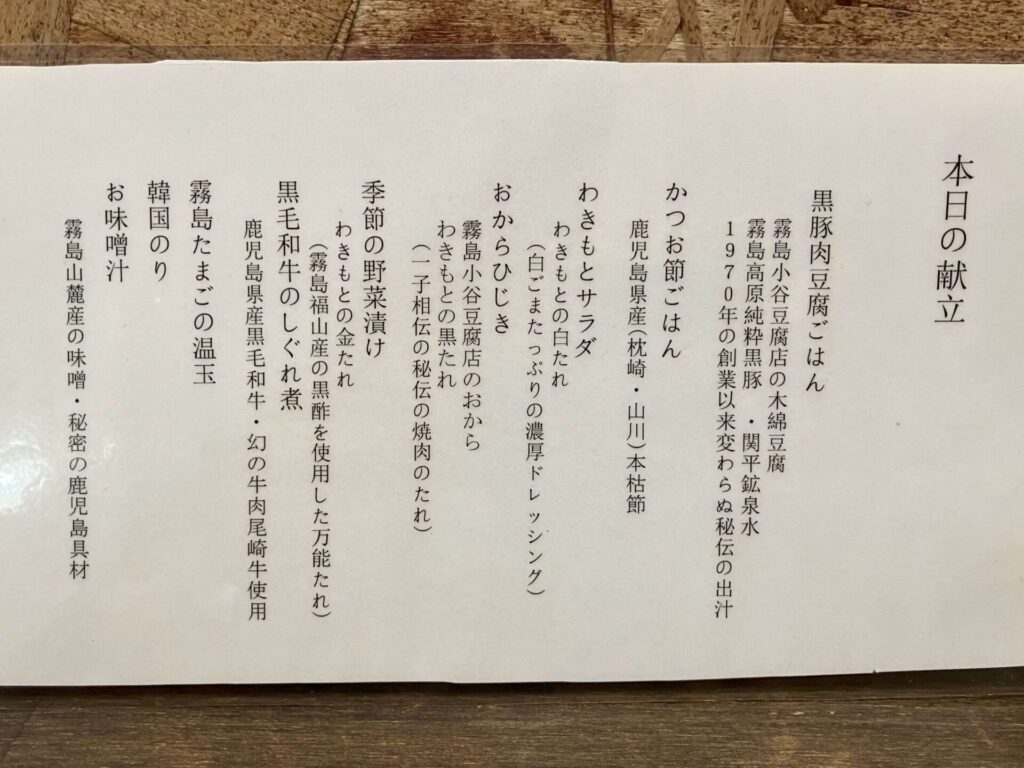 本日の献立
黒豚肉豆腐ごはん
霧島小谷豆腐店の木綿豆腐
霧島高原純粋黒豚 ・関平鉱泉水
1970年の創業以来変わらぬ秘伝の出汁
かつお節ごはん
鹿児島県産(枕崎・山川)本枯節
わきもとサラダ
わきもとの白たれ
(白ごまたっぷりの濃厚ドレッシング)
おからひじき
霧島小谷豆腐店のおから
わきもとの黒たれ
(一子相伝の秘伝の焼肉のたれ)
季節の野菜漬け
わきもとの金たれ
(霧島福山産の黒酢を使用した万能たれ)
黒毛和牛のしぐれ煮
鹿児島県産黒毛和牛・幻の牛肉尾崎牛使用
霧島たまごの温玉
韓国のり
お味噌汁
霧島山麓産の味噌・秘密の鹿児島具材